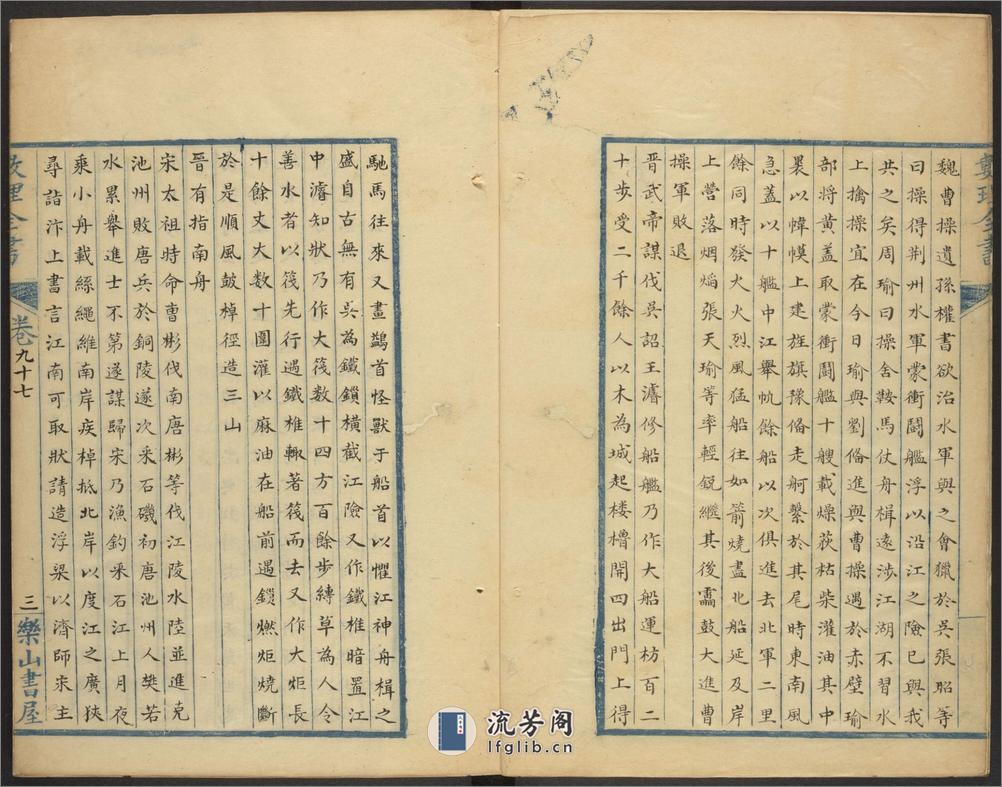 魏曹操遺孫權書欲治水軍與之會獵於吳張昭等
曰操得荆州水軍蒙衝鬭艦浮以沿江之險已與我
共之矣周瑜曰操舍鞍馬仗舟楫遠涉江湖不習水
上擒操宜在今日瑜與劉俻進與曹操遇於赤壁瑜
部將黃盖取蒙衝鬭艦十艘載燥荻枯柴灌油其中
裹以幃幙上建旌旗豫俻走舸繫於其尾時東南風
急蓋以十艦中江舉帆餘船以次俱進去北軍二里
餘同時發火火烈風猛船往如箭燒盡北船延及岸
上營落烟熖張天瑜等率輕銳繼其後靁鼓大進曹
操軍敗退
晉武帝謀伐吳詔王濬修船艦乃作大船運枋百二
十步受二千餘人以木為城起楼櫓開四出門上得
馳馬往來又畫鷁首怪獸于船首以懼江神舟楫之
盛自古無有吳為鐵鎖橫截江險又作鐵椎暗置江
中濬知狀乃作大筏數十四方百餘步縛草為人令
善水者以筏先行遇鐵椎輙著筏而去又作大炬長
十餘丈大數十圍灌以麻油在船前遇鎖燃炬燒斷
於是順風皷棹徑造三山
晉有指南舟
宋太祖時命曹彬伐南唐彬等伐江陵水陸並進克
池州敗唐兵於銅陵遂次采石磯初唐池州人樊若
水累舉進士不第遂謀歸宋乃漁釣采石江上月夜
乗小舟載絲繩維南岸疾棹抵北岸以度江之廣狹
尋詣汴上書言江南可取狀請造浮梁以濟師宋主
卷九十七
三
樂山書屋
流芳阁
lfglib.cn